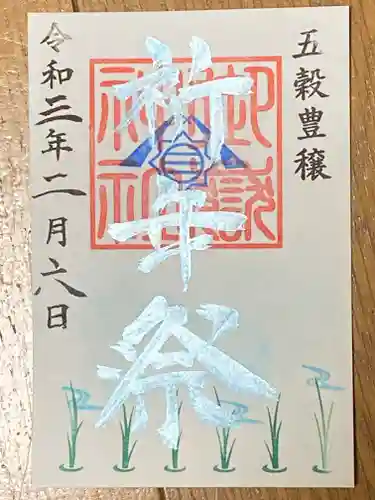 五穀豊穣
祈年祭
令和三年二月六日